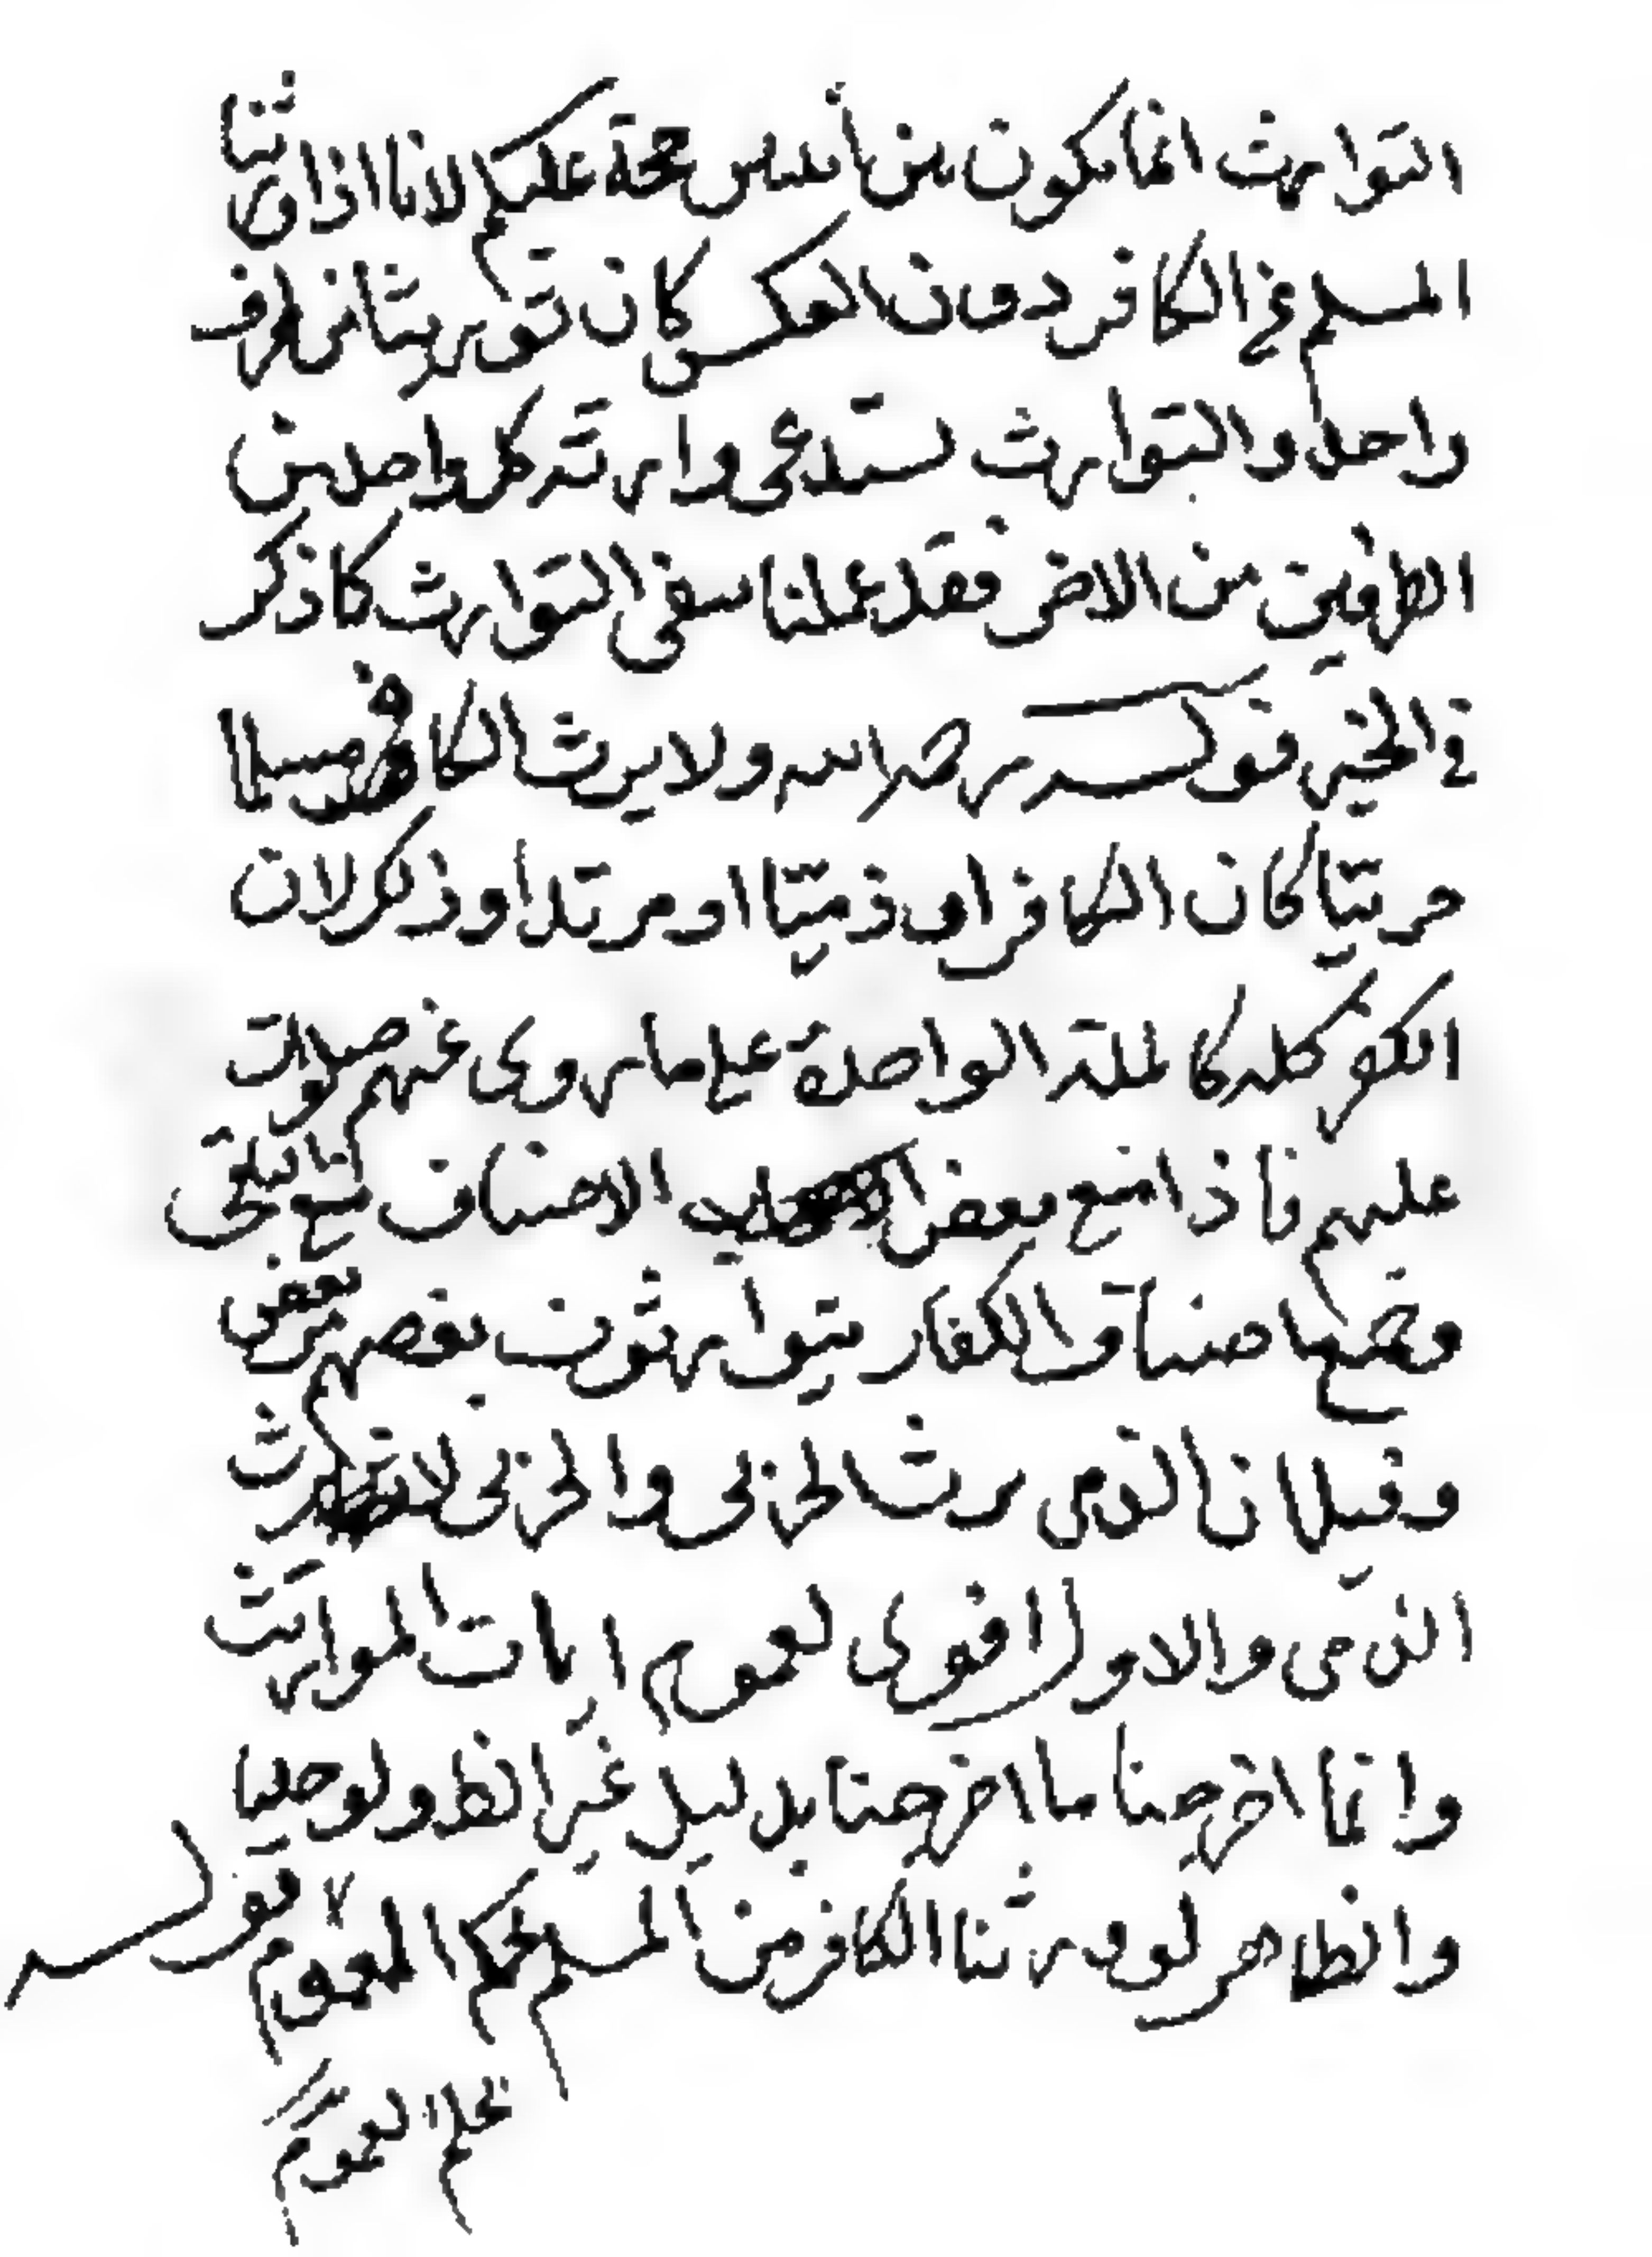 التوارث انما يكون من أهلين حجة عليكم لانا اذا ورثنا
المسلم في الكافر دون العكس كان توريثا من طرف
واحد والتوارث يستدعي وارثه كل واحد من
الطرفين من الاخر فقد عملنا بنفي التوارث كما ذكر
في الخبر قوله ولا يرث الكافر مسلما
حربيا كان الكافر او ذميا او مرتدا وذكر لان
الكفر كله كالملة الواحدة على ما روي عنهم صلوات
عليهم فاذا منع بعض الاصناف منع
جميعها صنا والكفار يتوارثون بعضهم من بعض
وقيل ان الذمي يرث الحربي والحربي لا يرث
الذمي والاول اقوى لعموم ايات المواريث
وانما اخرجنا ما اخرجنا بدليل غير الظ ولو خلينا
والظاهر لورثنا الكافر من المسلم بحكم العموم قوله
بحكم العموم